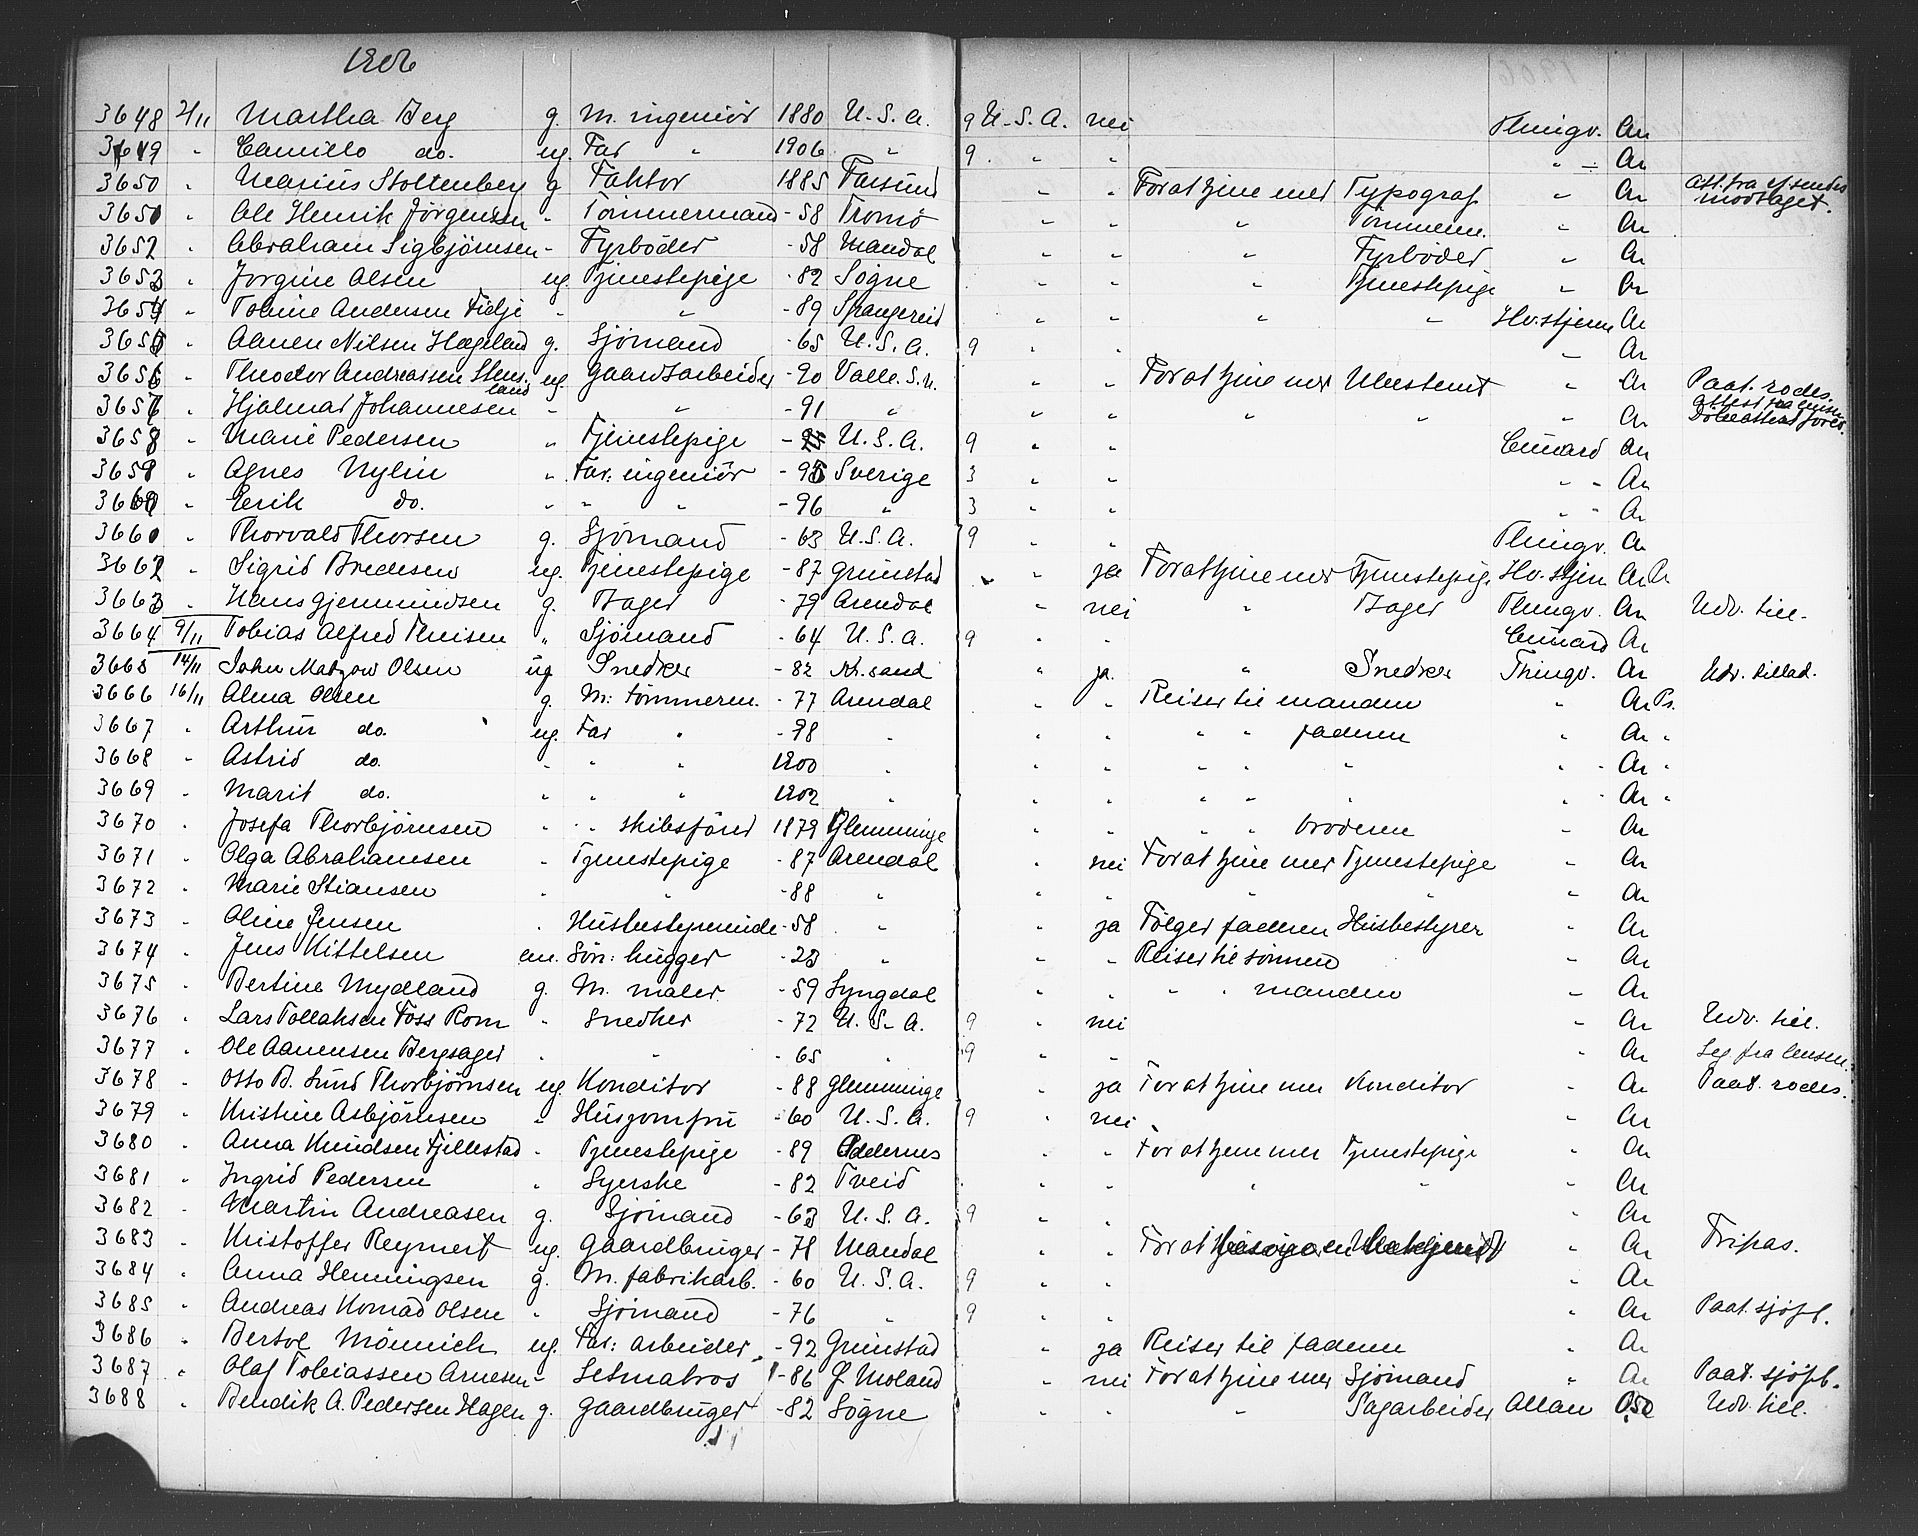 1906
3648 2/11 Martha Berg g. M. ingeniör 1880 U.S.A. 9 U.S.A. nei Thingv. An
3649 " Camillo do. ug. Far " 1906 " 9 " " " An
3650 " Marius Stoltenberg g. Faktor 1885 Farsund " " Forat tjene mer Typograf " An Att. fra modtaget.
3651 " Ole Henrik Jörgensen " Tömmermand -58 Tromö " " " Tömmerm. " An
3652 " Abraham Sigbjörnsen " Fyrböder -58 Mandal " " " Fyrböder " An
3653 " Jorgine Olsen ug. Tjenestepige -82 Sögne " " " Tjenestepige " An
3654 " Tobine Andersen Fidje " " -89 Spangereid " " " " Hv. stjern An
3655 " Aanen Nilsen Hægeland g. Sjömand -65 U.S.A. 9 " " " An
3656 " Theodor Andreassen Stensland ug. Gaardsarbeider -90 Valle. S.U. " " Forat tjene mer Ubestemt " An Paat. rodes.
3657 " Hjalmar Johannesen " " -91 " " " " " " An
3658 " Marie Pedersen " Tjenestepige U.S.A. 9 " " Cunard An
3659 " Agnes Nylin " Far: ingeniör Sverige 3 " " " " An
3660 " Eerik do. " " " -96 " 3 " " " " An
3661 " Thorvald Thorsen g. Sjömand -63 U.S.A. 9 " " Thingv. An
3662 " Sigrid Bredesen ug. Tjenestepige -87 Grimstad " ja Forat tjene mer Tjenestepige Hv. stjern An
3663 " Hans Gjermundsen g. Bager -79 Arendal " nei " Bager Thingv. An Udv. till.
3664 9/11 Tobias Alfred Theisen " Sjömand -64 U.S.A. 9 " " Cunard An
3665 14/11 John Matzow Olsen ug Snedker -82 Kr.sand " ja " Snedker Thingv. An Udv. tillad.
3666 16/11 Alma Olsen g. M: tömmerm. -77 Arendal " " Reiser til manden " An Ps.
3667 " Arthur do. ug. Far " -98 " " " " " faderen " An "
3668 " Astrid do. " " " 1900 " " " " " " " An "
3669 " Marit do. " " " 1902 " " " " " " " An "
3670 " Josefa Thorbjörnsen " " skibsförer 1879 Glemminge " " " " broderen " An
3671 " Olga Abrahamsen " Tjenestepige -87 Arendal " nei Forat tjene mer Tjenestepige " An
3672 " Marie Stiansen " " -88 " " " " " " An
3673 " Oline Jensen " Husbestyrerinde -58 " " ja Følger faderen Husbestyrer " An
3674 " Jens Kittelsen em. Sön: hugger -23 " " " Reiser til sönnen " An
3675 " Bertine Mydland g. M. maler -59 Lyngdal " " " " manden " An
3676 " Lars Tollaksen Foss Rom " Snedker -72 U.S.A. 9 " nei " An Udv. till.
3677 " Ole Aanensen Bergsager " " -65 " 9 " " " An Leg fra lensm.
3678 " Otto B. Lund Thorbjörnsen ug. Konditor -88 Glemminge " ja Forat tjene mer Konditor " An Paat. rodes.
3679 " Kristine Asbjörnsen " Husjomfru -60 U.S.A. 9 " nei " An
3680 " Anna Knudsen Fjellestad " Tjenestepige -89 Oddernes " " Forat tjene mer Tjenestepige " An
3681 " Ingrid Pedersen " Syerske -82 Tveid " " " " " An
3682 " Martin Andreasen g. Sjömand -63 U.S.A. 9 " " " An
3683 " Kristoffer Reymert ug. Gaardbruger -78 Mandal " " Forat besöge en " An Fripas.
3684 " Anna Henningsen g. M. fabrikarb. -60 U.S.A. 9 " " " An
3685 " Andreas Konrad Olsen " Sjömand -76 " 9 " " " An Paat. sjöfl.
3686 " Bertol Mönnich ug. Far: arbeider -92 Grimstad " ja Reiser til faderen " An
3687 " Olaf Tobiassen Arnesen " Letmatros -86 Ø. Moland " nei Forat tjene mer Sjömand " An Paat. sjöfl.
3688 " Bendik A. Pedersen Hagen g. Gaardbruger -82 Sögne " " " Sagarbeider Allan Udv. till.